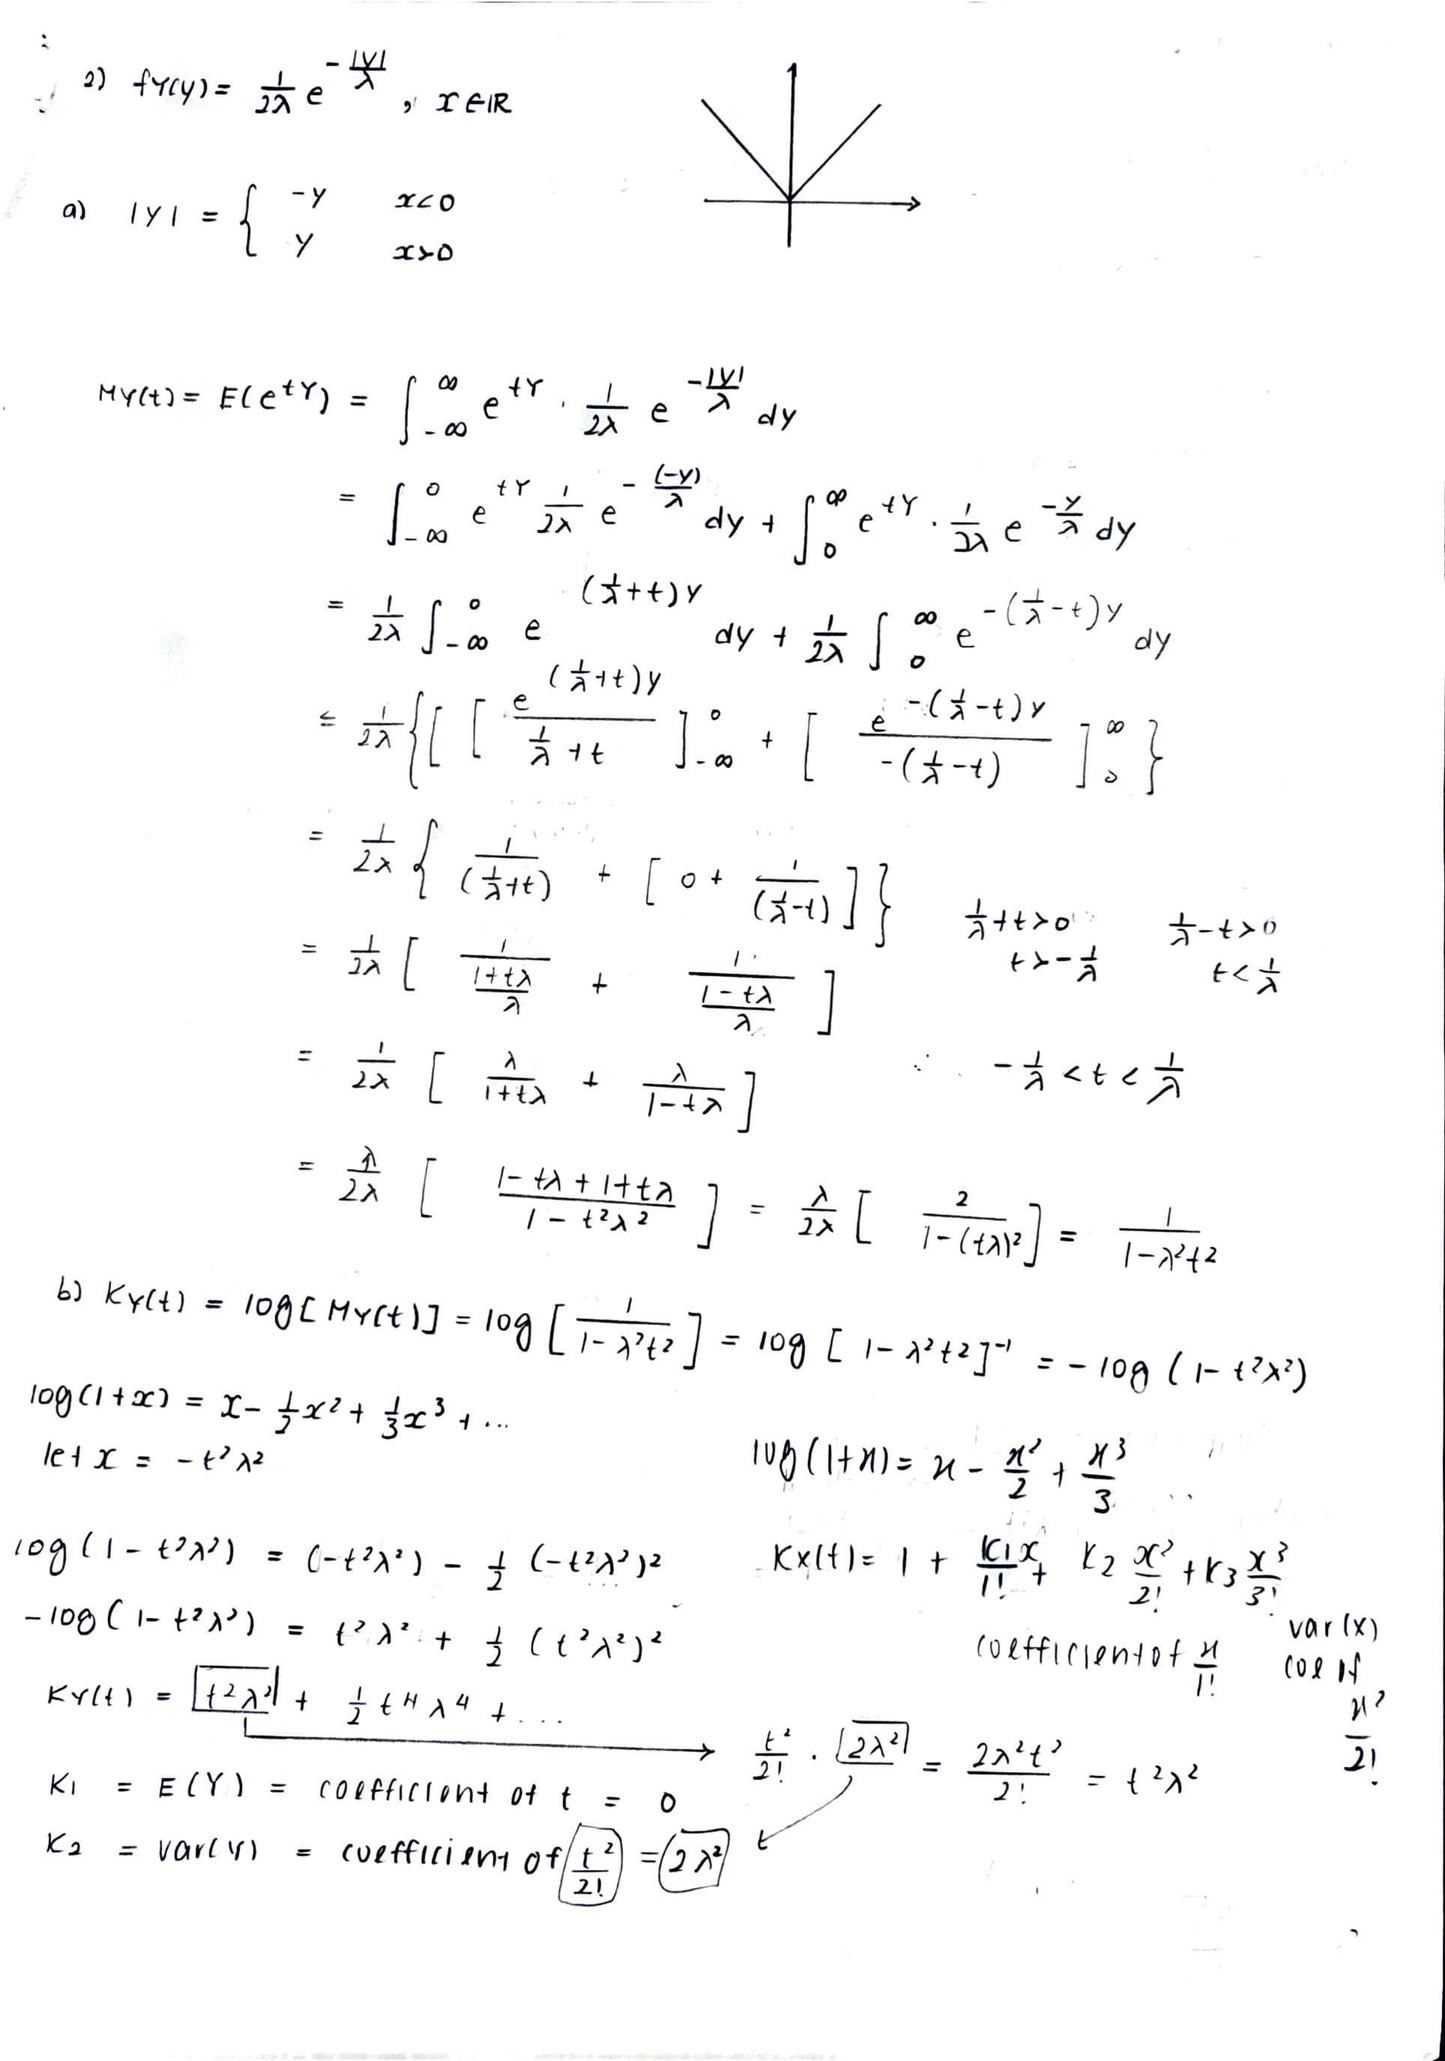 2) fY(y) = 1/2λ e^(-|y|/λ) , x ∈ ℝ
a) |y| = { -y x<0
y x>0
MY(t) = E(e^tY) = ∫_-∞^∞ e^tY . 1/2λ e^(-|y|/λ) dy
= ∫_-∞^0 e^tY 1/2λ e^(-(-y)/λ) dy + ∫_0^∞ e^tY . 1/2λ e^(-y/λ) dy
= 1/2λ ∫_-∞^0 e^((1/λ+t)y) dy + 1/2λ ∫_0^∞ e^(-(1/λ-t)y) dy
= 1/2λ {[ [ e^((1/λ+t)y) / (1/λ+t) ]_-∞^0 + [ e^(-(1/λ-t)y) / -(1/λ-t) ]_0^∞ }
= 1/2λ { 1/(1/λ+t) + [ 0 + 1/(1/λ-t) ] } 1/λ+t>0 1/λ-t>0
t>-1/λ t<1/λ
= 1/2λ [ 1/((1+tλ)/λ) + 1/((1-tλ)/λ) ]
= 1/2λ [ λ/(1+tλ) + λ/(1-tλ) ] ∴ -1/λ < t < 1/λ
= λ/2λ [ (1-tλ+1+tλ)/(1-t²λ²) ] = λ/2λ [ 2/(1-(tλ)²) ] = 1/(1-λ²t²)
b) KY(t) = log[MY(t)] = log [ 1/(1-λ²t²) ] = log [1-λ²t²]^-1 = -log (1-t²λ²)
log(1+x) = x - 1/2 x² + 1/3 x³ + ...
let x = -t²λ²
log(1+x) = x - x²/2 + x³/3
log(1-t²λ²) = (-t²λ²) - 1/2 (-t²λ²)²
Kx(t) = 1 + K1x/1! + K2 x²/2! + K3 x³/3!
-log(1-t²λ²) = t²λ² + 1/2 (t²λ²)²
coefficient of x/1!
var(x)
coe of
x²/2!
KY(t) = t²λ² + 1/2 t⁴λ⁴ + ...
t²/2! . 2λ² = 2λ²t²/2! = t²λ²
K1 = E(Y) = coefficient of t = 0
K2 = var(Y) = coefficient of t²/2! = 2λ²